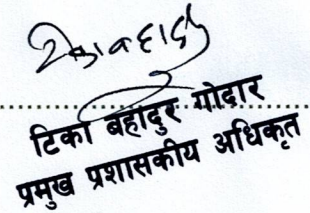 टिका बहादुर गोदार
प्रमुख प्रशासकीय अधिकृत